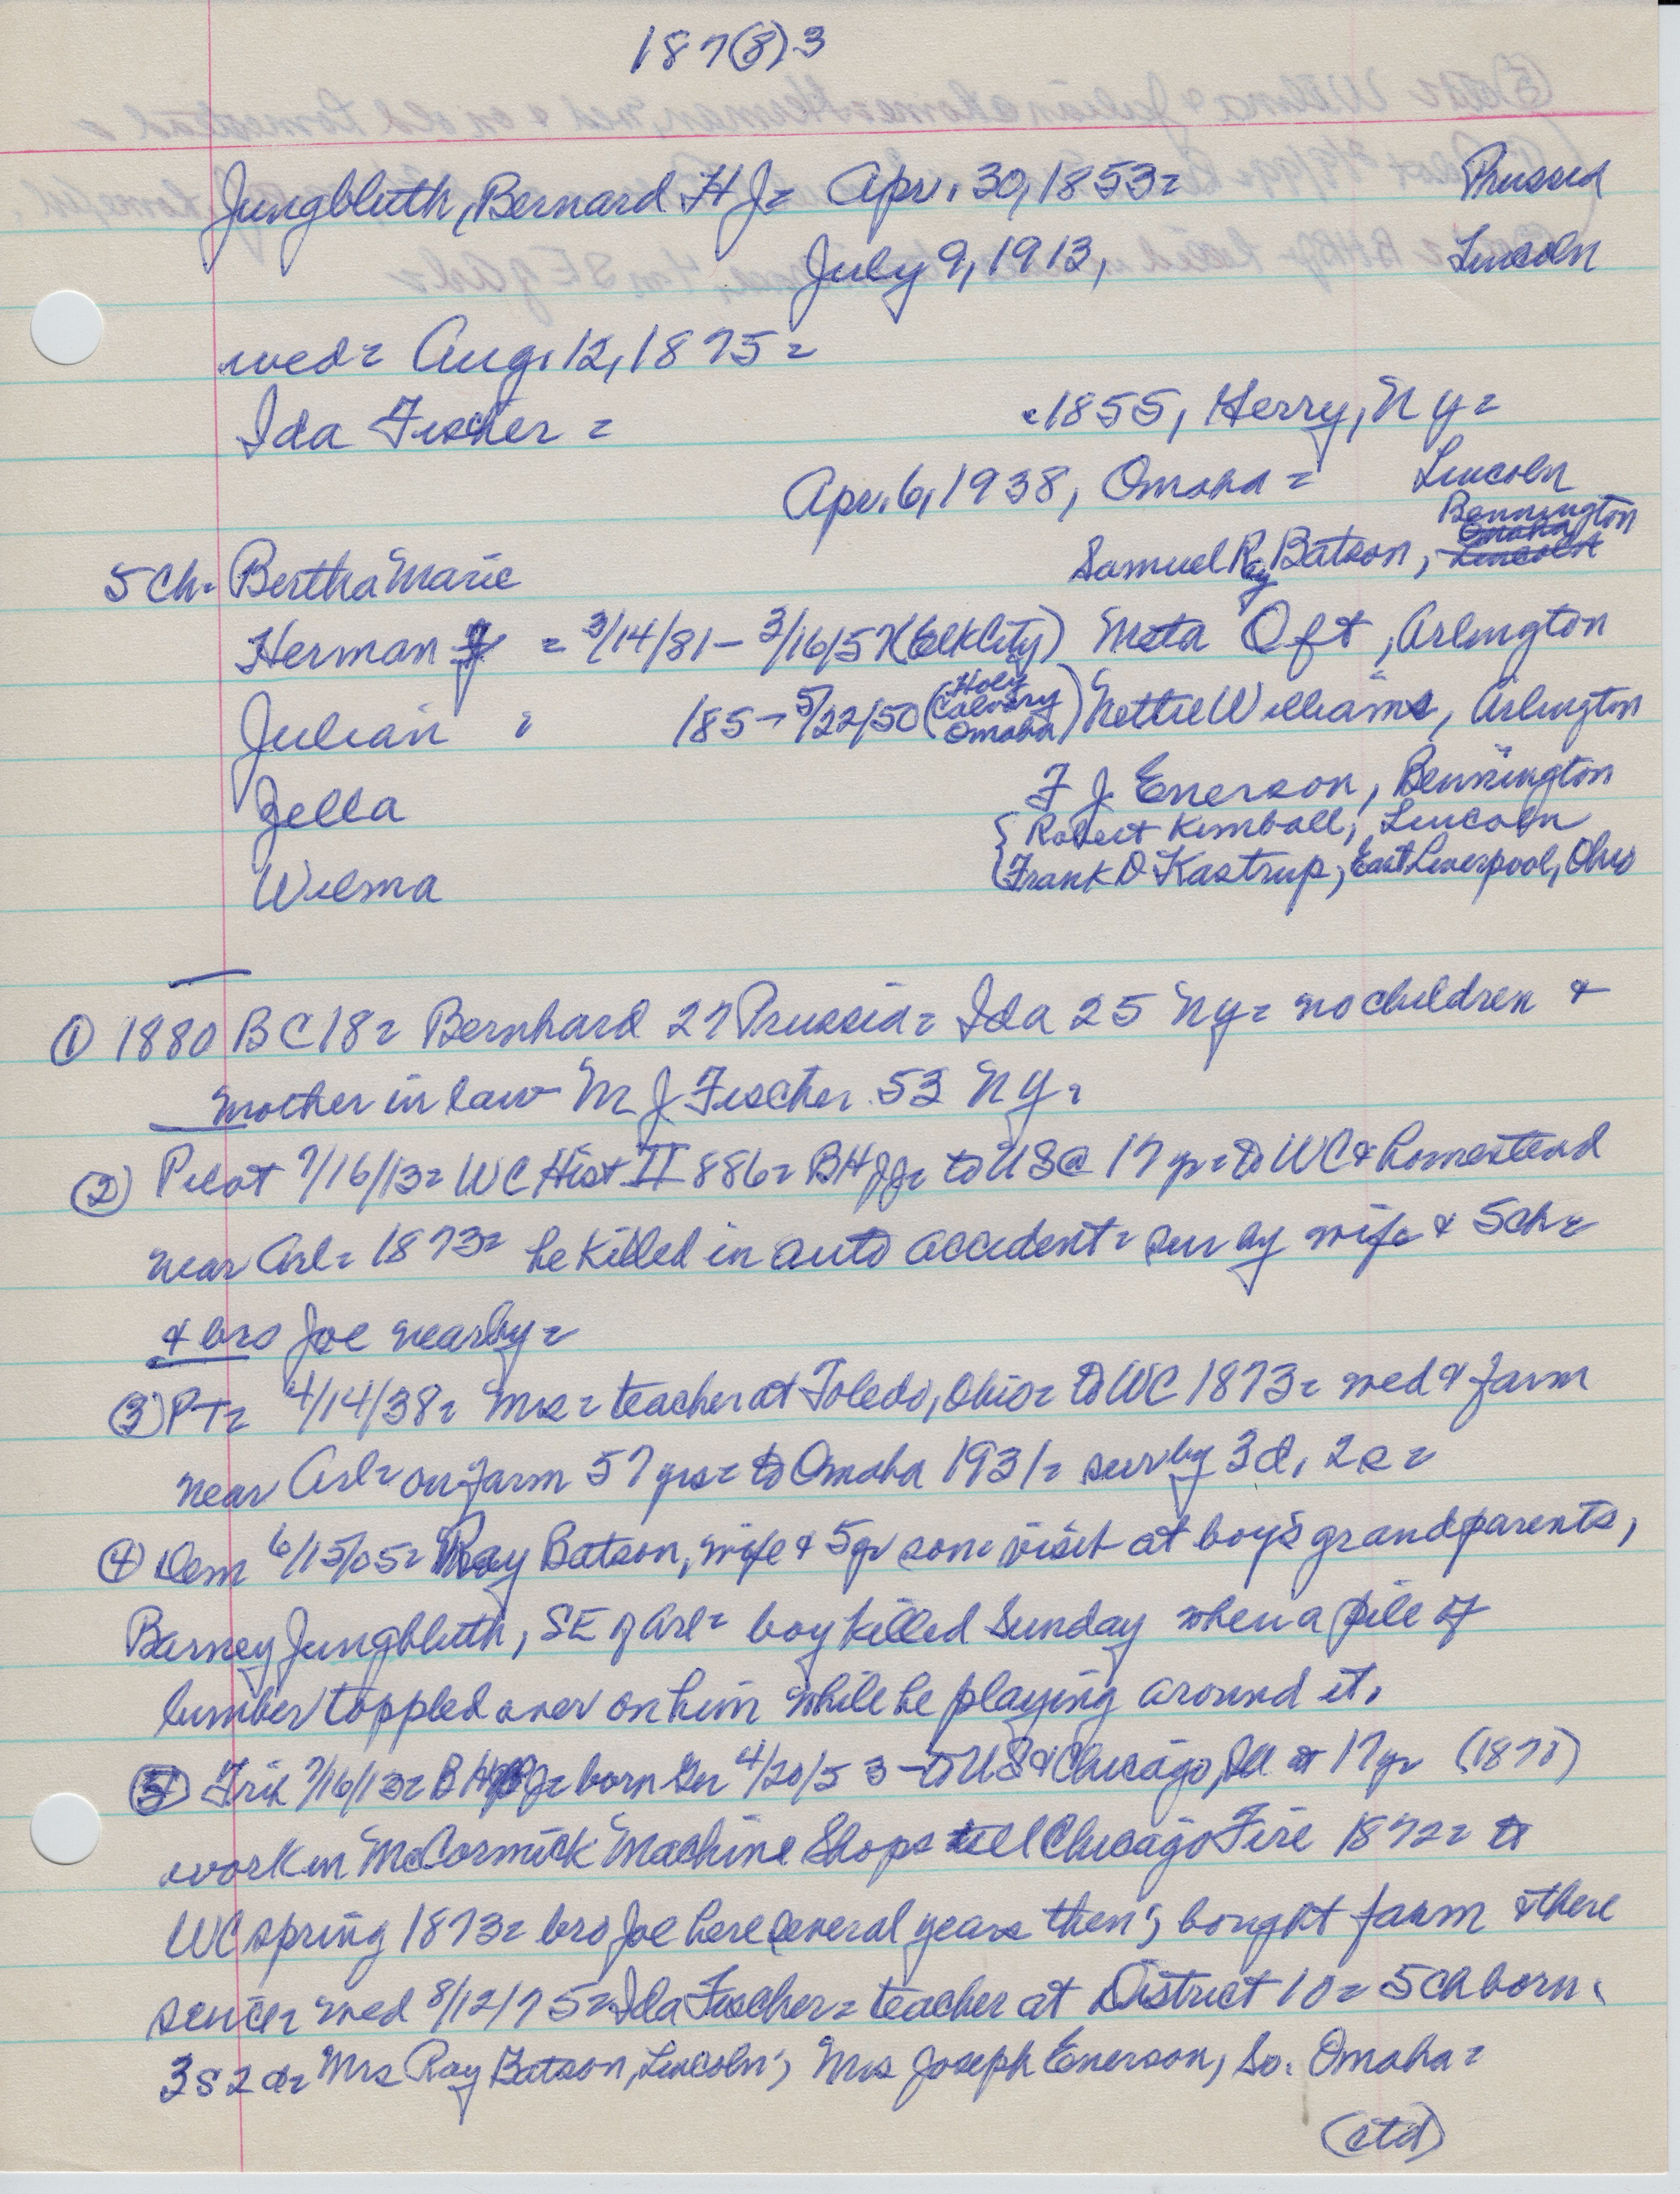 187(8)3
Jungbluth, Bernard H J= Apr. 30, 1853= Prussia
July 9, 1913, Lincoln
wed= Aug. 12, 1875=
Ida Fischer = 1855, Herry, N Y=
Apr. 6, 1938, Omaha = Lincoln
Bennington
5 Ch. Bertha Marie Samuel Ray Batson, Omaha Lincoln
Herman J = 3/14/81 - 3/16/57 (Elk City) Meta Oft, Arlington
Julian = /85 - 5/22/50 (Holy Calvary Omaha) Nettie Williams, Arlington
Zella F J Enerson, Bennington
{ Robert Kimball, Lincoln
Wilma (Frank D Kastrup, East Liverpool, Ohio
① 1880 BC18= Bernhard 27 Prussia= Ida 25 NY= no children &
mother in law M J Fischer 53 NY=
② Pilot 7/16/13= WC Hist II 886= BHJJ= to US @ 17 yr= to WC & homestead
near Arl= 1873= he killed in auto accident= sur by wife & 5ch=
& bro Joe nearby=
③ PT= 4/14/38= Mrs= teacher at Toledo, Ohio= to WC 1873= wed & farm
near Arl= on farm 57 yrs= to Omaha 1931= sur by 3d, 2s=
④ Dem 6/15/05= Ray Batson, wife & 5yr son visit at boy's grandparents,
Barney Jungbluth, SE of Arl= boy killed Sunday when a pile of
lumber toppled over on him while he playing around it.
⑤ Trib 7/16/13= B H J= born Ger 4/20/53 - to US & Chicago, Ill at 17 yr (1870)
work in McCormick Machine Shops till Chicago Fire 1872= to
WC spring 1873= bro Joe here several years then; bought farm & there
since= wed 8/12/75= Ida Fischer= teacher at District 10= 5 ch born.
3s 2d= Mrs Ray Batson, Lincoln; Mrs Joseph Enerson, So. Omaha=
(ctd)